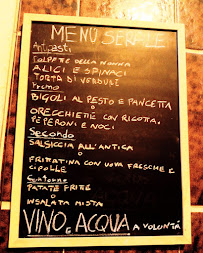 MENÙ SERALE
Antipasti
POLPETTE DELLA NONNA
ALICI E SPINACI
TORTA DI VERDURE
Primo
BIGOLI AL PESTO E PANCETTA
O
ORECCHIETTE CON RICOTTA,
PEPERONI E NOCI
Secondo
SALSICCIA ALL'ANTICA
O
FRITTATINA CON UOVA FRESCHE E
CIPOLLE
Contorno
PATATE FRITTE
O
INSALATA MISTA
VINO E ACQUA A VOLONTÀ